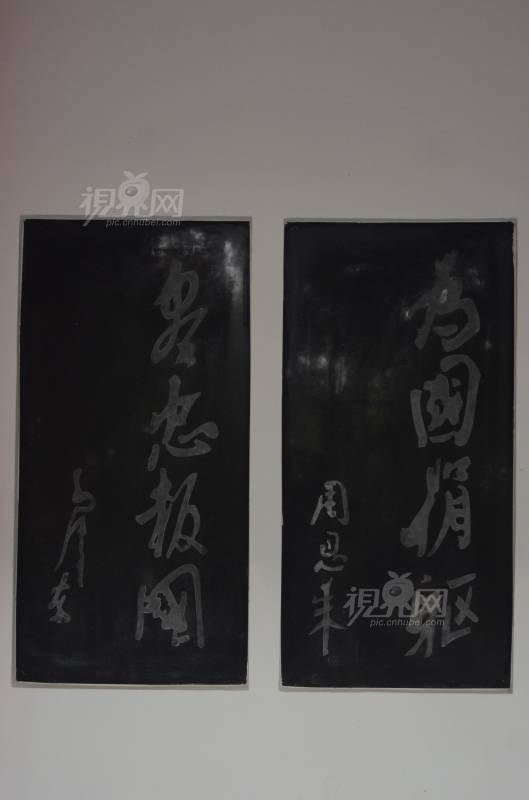 視界网
pic.cnhubei.com
尽忠报國
毛泽东
为國捐躯
周恩来
視界网
pic.cnhubei.com